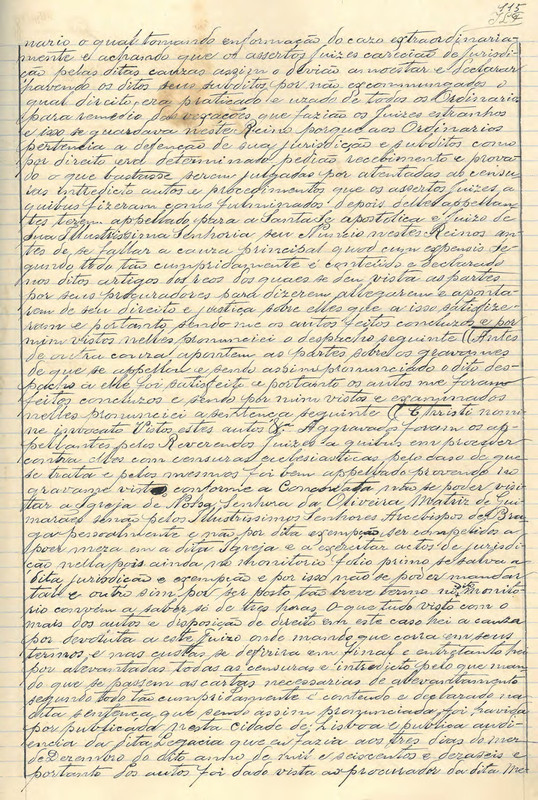 115
nario o qual tomando enformação do cazo extraordinaria-
mente e achando que os assertos juizes carecião de Jurisdi-
ção pelas ditas cauzas assim o devião amoestar e declarar
havendo os ditos seus subditos por não excommungados o
qual direito era praticado e uzado de todos os Ordinarios
para remedio das vexações que fazião os Juizes estranhos
e isso se guardava neste Reino porque aos Ordinarios
pertencia a defenção de sua jurisdicção e subditos como
por direito era determinado pedião recebimento e prova-
do o que bastasse serem julgadas por atentadas as censu-
ras intredicto autos e procedimentos que os assertos juizes a
quibus fizeram como fulminados depois delles appellan-
tes terem appellado para a Santa Sé apostolica e juizo de
sua Illustrissima Senhoria seu Nuncio nestes Reinos an-
tes de se fallar a cauza principal quod cum expensis se-
gundo todo tão cumpridamente é conteúdo e declarado
nos ditos artigos dos reos dos quaes se deu vista as partes
por seus procuradores para dizerem allegarem e aponta-
rem de seu direito e justiça sobre elles que a isso satisfize-
ram e portanto sendo me os autos feitos concluzos e por
mim vistos nelles pronunciei o despacho seguinte (Antes
de outra couza apontem as partes sobre os gravames
de que se appellou e sendo assim pronunciado o dito des-
pacho a elle foi satisfeito e portanto os autos me foram
feitos concluzos e sendo por mim vistos e examinados
nelles pronunciei a sentença seguinte (Christi nomi-
ne invocato Vistos estes autos &.ª Aggravados foram os ap-
pellantes pelos Reverendos Juizes a quibus em proceder
contra elles com censuras ecclesiasticas pelo caso de que
se trata e pelos mesmos foi bem appellado provendo no
gravame visto conforme a Concordata não se poder visi-
tar a Igreja de Nossa Senhora da Oliveira Matriz de Gui-
marães senão pelos Illustrissimos Senhores Arcebispos de Bra-
ga pessoalmente e não por dita exempção ser compellidos a
poer meza em a dita Igreja e a exercitar actos de jurisdi-
ção nella pois ainda no monitorio folio primo se salva a
dita jurisdição e exempção e por isso não se poder mandar
tal e outro sim por ser posto tão breve termo no dito monito-
rio convem a saber só de tres horas O que tudo visto com o
mais dos autos e disposição de direito em este caso hei a cauza
por devoluta a este juizo onde mando que corra em seus
termos e nas custas se deferira em final e entretanto hei
por alevantadas todas as censuras e intredicto pelo que man-
do que se passem as cartas necessarias de alevantamento
segundo todo tão cumpridamente é contendo e declarado na
dita sentença que sendo assim pronunciada foi havida
por publicada nesta cidade de Lisboa e publica audi-
encia da dita Legacia que eu fazia aos tres dias do mez
de Dezembro do dito anno de mil e seiscentos e dezaseis e
portanto dos autos foi dado vista ao procurador da dita Me-